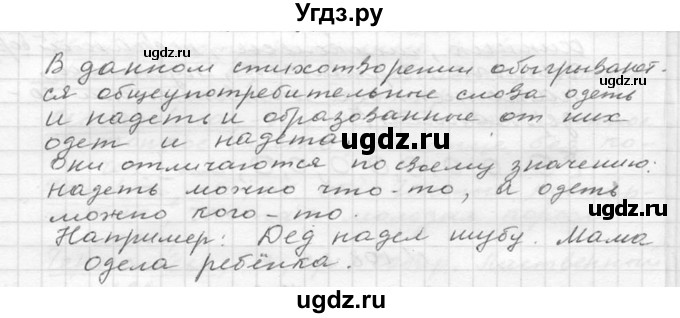 Угдз.ру
В данном стихотворении обыгрывают-
ся общеупотребительные слова одеть
и надеть и образованные от них
одет и надета
они отличаются по своему значению:
надеть можно что-то, а одеть
можно кого-то.
Например: Дед надел шубу. Мама
одела ребёнка.
ugdz.ru
ugdz.ru
ugdz.ru
ugdz.ru
ugdz.ru
ugdz.ru